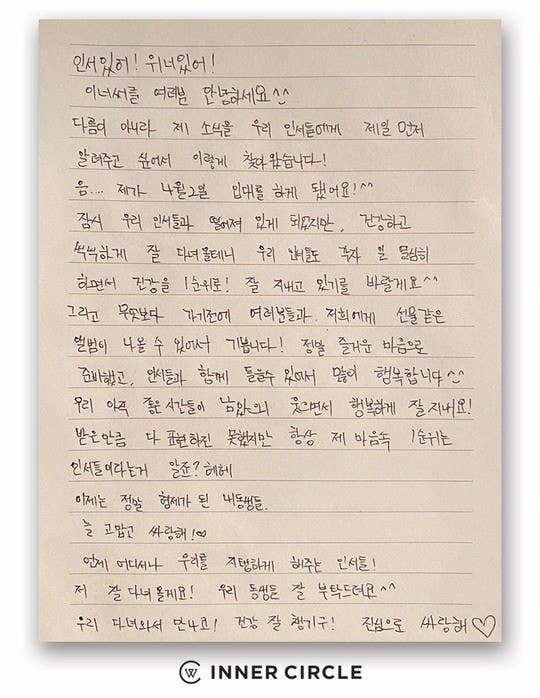 인서있어! 위너있어!
이너써클 여러분 안녕하세요^^
다름이 아니라 제 소식을 우리 인서들에게 제일 먼저
알려주고 싶어서 이렇게 찾아왔습니다!
음.... 제가 4월2일 입대를 하게 됐어요!^^
잠시 우리 인서들과 떨어져 있게 되었지만, 건강하고
씩씩하게 잘 다녀올테니 우리 인서들도 각자 일 열심히
하면서 건강을 1순위로! 잘 지내고 있기를 바랄게요^^
그리고 무엇보다 가기전에 여러분들과 저희에게 선물같은
앨범이 나올 수 있어서 기쁩니다! 정말 즐거운 마음으로
준비했고, 인서들과 함께 들을수 있어서 많이 행복합니다^^
우리 아직 좋은시간들이 남았으니 웃으면서 행복하게 잘지내요!
받은만큼 다 표현하진 못했지만 항상 제 마음속 1순위는
인서들이라는거 알죠? 헤헤
이제는 정말 형제가 된 내동생들.
늘 고맙고 싸랑해!♡
언제 어디서나 우리를 지탱하게 해주는 인서들!
저 잘 다녀올게요! 우리 동생들 잘 부탁드려요^^
우리 다녀와서 만나고! 건강 잘 챙기구! 진심으로 싸랑해♡
INNER CIRCLE